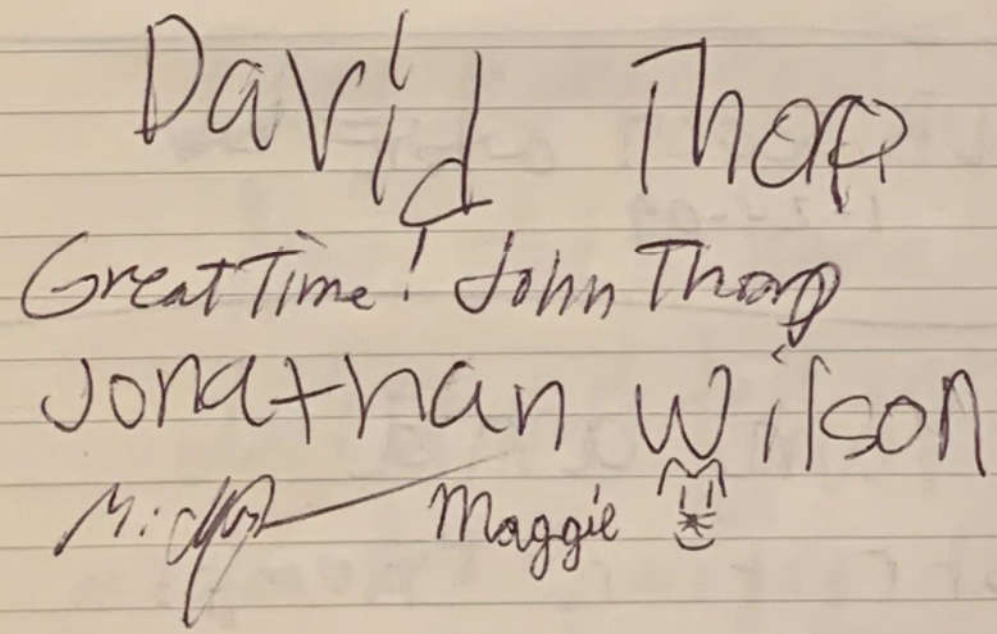 David Thorp
Great Time! John Thorp
Jonathan Wilson
Maggie